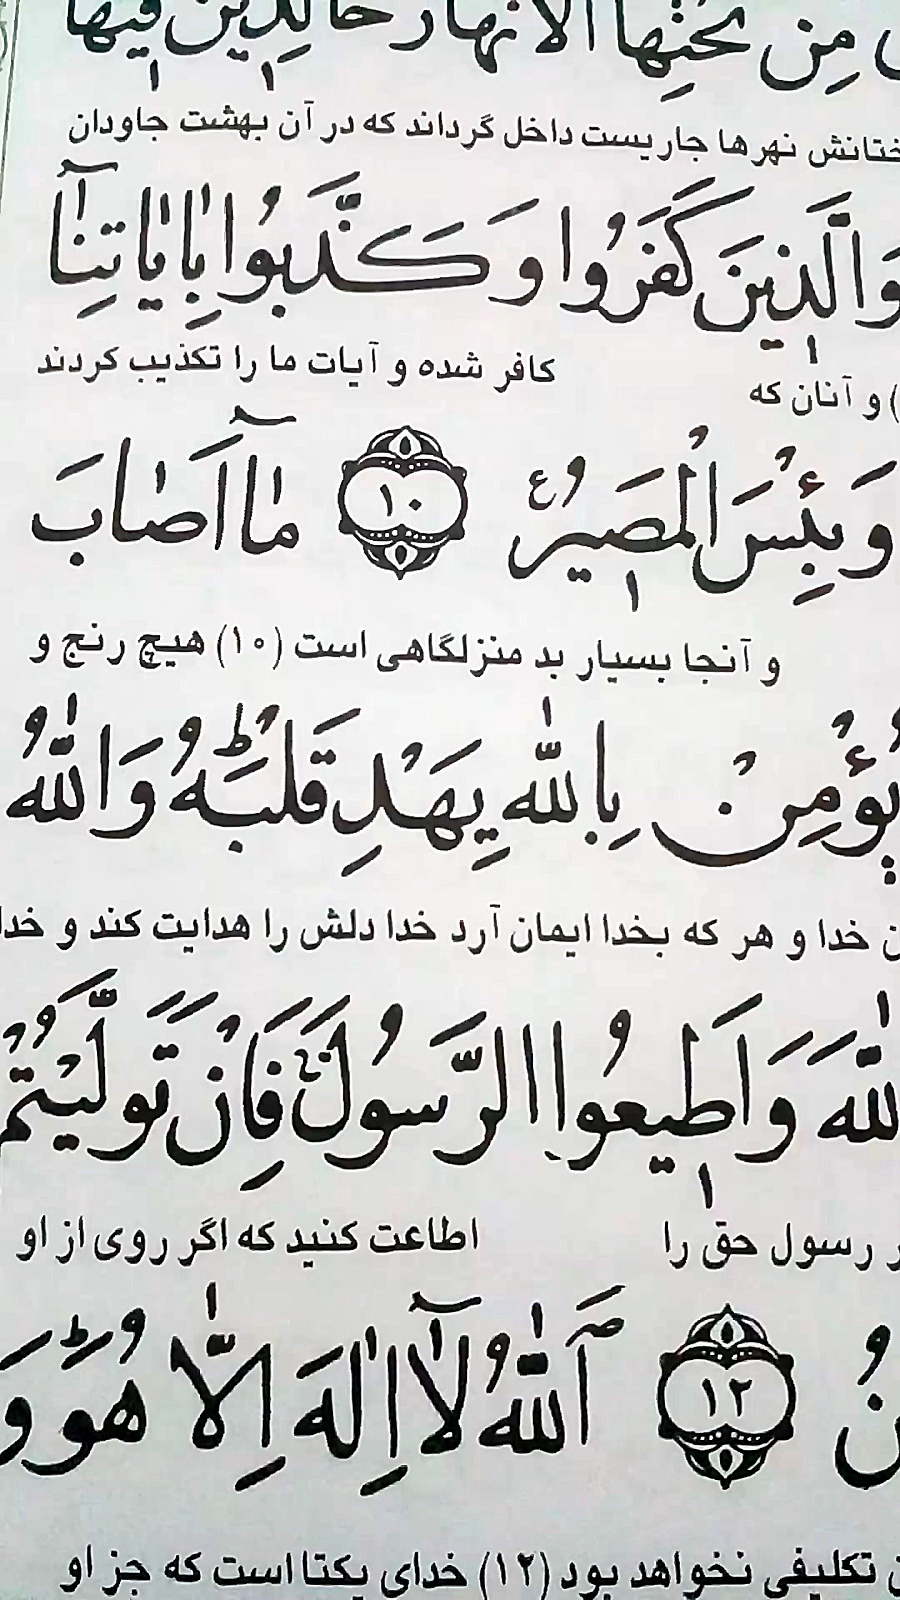 مِن تَحْتِهَا الْاَنْهَارُ خَالِدِينَ فِيهَا
جاریست داخل گرداند که در آن بهشت جاودان نهرها
وَالَّذِينَ كَفَرُوا وَكَذَّبُوا بِاٰيَاتِنَآ
) و آنان که کافر شده و آیات ما را تکذیب کردند
وَبِئْسَ الْمَصِيرُ ﴿١٠﴾ مَآ اَصَابَ
و آنجا بسیار بد منزلگاهی است (١٠) هیچ رنج و
يُؤْمِنْ بِاللّٰهِ يَهْدِ قَلْبَهُ وَاللّٰهُ
خدا و هر که بخدا ایمان آرد خدا دلش را هدایت کند و خدا
اللّٰهَ وَاَطِيعُوا الرَّسُولَ فَاِنْ تَوَلَّيْتُمْ
رسول حق را اطاعت کنید که اگر روی از او
﴿١٢﴾ اَللّٰهُ لَآ اِلٰهَ اِلَّا هُوَ وَ
تکلیفی نخواهد بود (١٢) خدای یکتا است که جز او